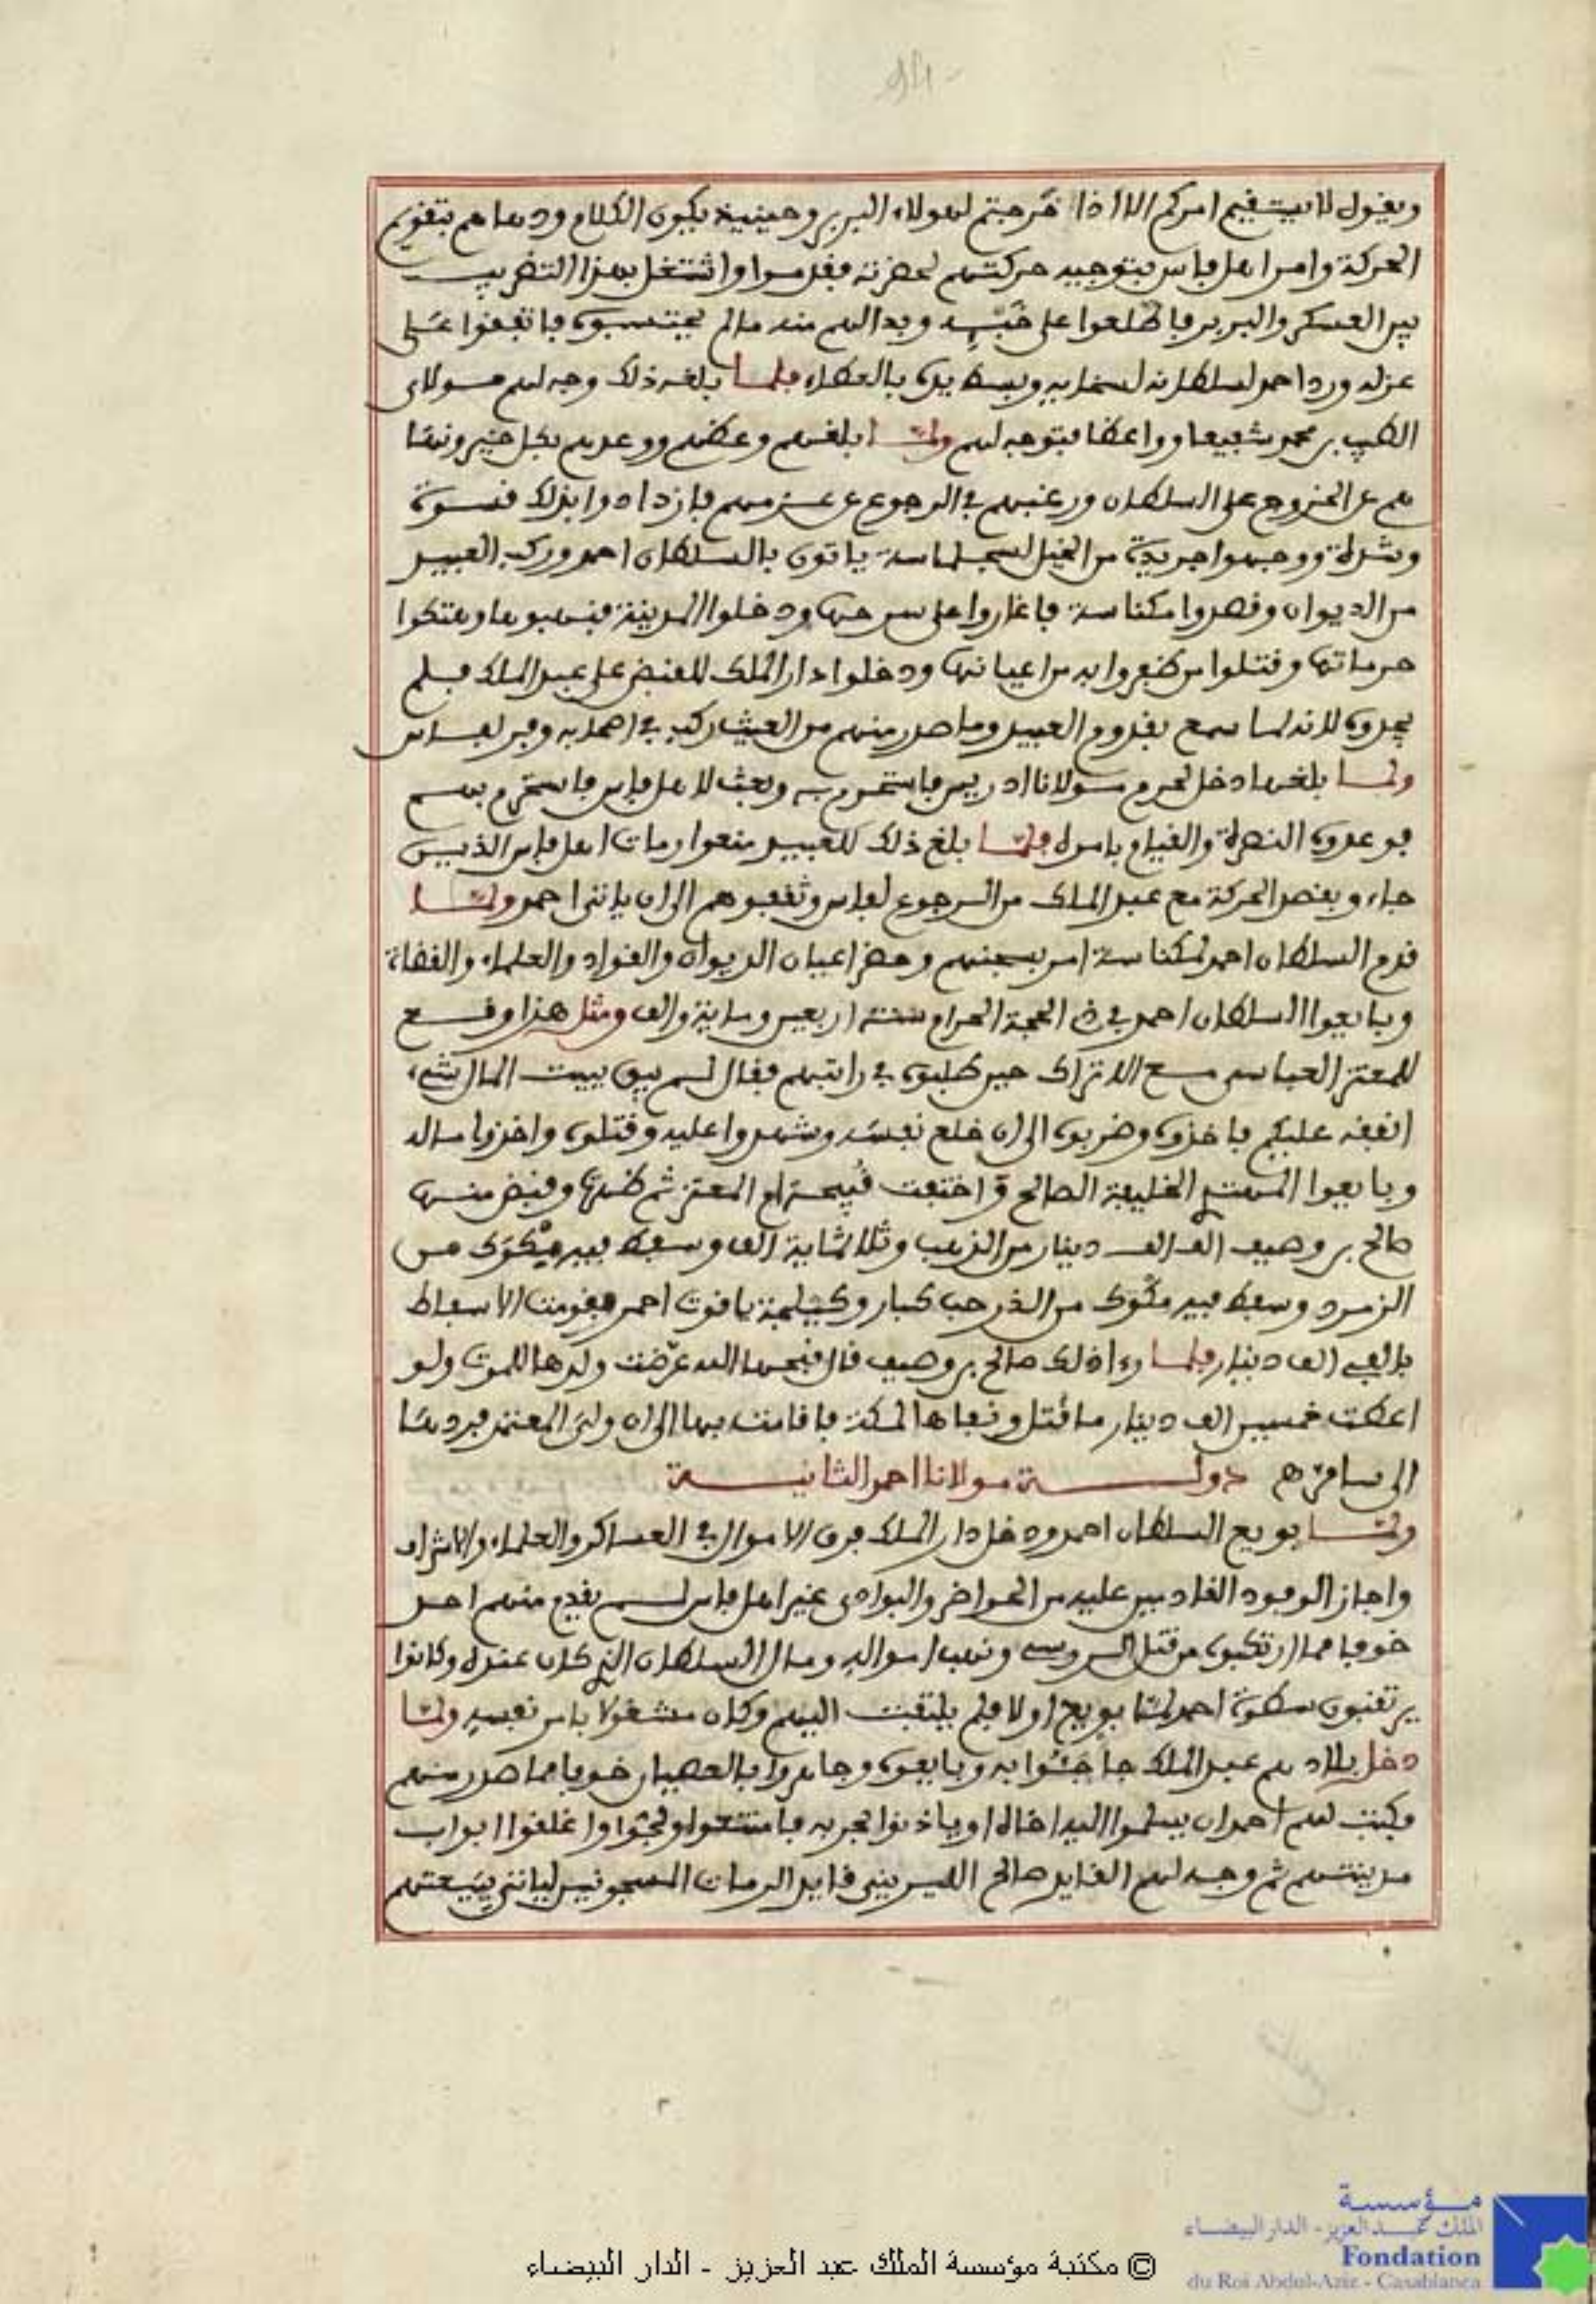 94
ويقول لا يستقيم امركم الا اذا خرجتم لهولاء البربر وحينيذ يكون الكلام ودعاهم بتقويم
الحركة وامر اهل فاس بتوجيه حركتهم لحضرته فقدموا واشتغل بهذا التضريب
بين العسكر والبربر فاطلعوا على خبثه وبدا لهم منه ما لم يحتسبوه فاتفقوا على
عزله ورد احمد لسلطانه لسخايه وبسط يده بالعطاء فلما بلغه ذلك وجه لهم مولاى
الطيب بن محمد شفيعا وواعظا فتوجه لهم ولما بلغهم وعظهم ووعدهم بكل خير ونها
هم عن الخروج على السلطان ورغبهم في الرجوع عن عزمهم فازدادوا بذلك قسوة
وشدة ووجهوا جريدة من الخيل لسجلماسة ياتون بالسلطان احمد وركب العبيد
من الديوان وقصدوا مكناسة فاغاروا على سرحها ودخلوا المدينة فنهبوها وهتكوا
حرماتها وقتلوا من ظفروا به من اعيانها ودخلوا دار الملك للقبض على عبد الملك فلم
يجدوه لانه لما سمع بقدوم العبيد وما صدر منهم من العيث ركب في اصحابه وفر لفاس
ولما بلغها دخل لحرم مولانا ادريس فاستحرم به وبعث لاهل فاس فاستحرم بهم
فوعدوه النصرة والقيام بامره فلما بلغ ذلك للعبيد منعوا رمات اهل فاس الذين
جاءو بقصد الحركة مع عبد الملك من الرجوع لفاس وثقفوهم الى ان ياتى احمد ولما
قدم السلطان احمد لمكناسة امر بسجنهم وحضر اعيان الديوان والقواد والعلماء والقضاة
وبايعوا السلطان احمد في ذى الحجة الحرام سنة اربعين وماية والف ومثل هذا وقع
للمعتز العباسى مع الاتراك حين طلبوه في راتبهم فقال لم يبق ببيت المال شىء
انفقه عليكم فاخذوه وضربوه الى ان خلع نفسه وشهدوا عليه وقتلوه واخذوا ماله
وبايعوا المهتدى الخليفة الصالح واختفت قبيحة ام المعتز ثم ظهرت وقبض منها
صالح بن وصيف الف الف دينار من الذهب وثلاثماية الف وسفط فيه مكوك من
الزمرد وسفط فيه مكوك من الدر حب كبار وكيلجة ياقوت احمر فقومت الاسفاط
بالفى الف دينار فلما رءا ذلك صالح بن وصيف قال قبحها الله عرضت ولدها للموت ولو
اعطت خمسين الف دينار ما قتل ونفاها لمكة فاقامت بها الى ان ولى المعتمد فردها
الى سامرا هم دولة مولانا احمد الثانية
ولما بويع السلطان احمد ودخل دار الملك فرق الاموال في العساكر والعلماء والاشراف
واجاز الوفود القادمين عليه من الحواضر والبوادى غير اهل فاس لم يقدم منهم احد
خوفا مما ارتكبوه من قتل الروسى ونهب امواله ومال السلطان الذى كان عنده وكانوا
يرتقبون سطوة احمد لما بويع اولا فلم يلتفت اليهم وكان مشغولا بامر نفسه ولما
دخل بلادهم عبد الملك جا جئوا به وبايعوه وجاهروا بالعصيان خوفا مما صدر منهم
فكتب لهم احمد ان يسلموا اليه اخاه او ياذنوا بحربه فامتنعوا ولجوا واغلقوا ابواب
مدينتهم ثم وجه لهم القايد صالح الليرينى قايد الرمات المسجونين لياتى ببيعتهم
مؤسسة
الملك عبد العزيز - الدار البيضاء
Fondation
du Roi Abdul-Aziz - Casablanca
© مكتبة مؤسسة الملك عبد العزيز - الدار البيضاء